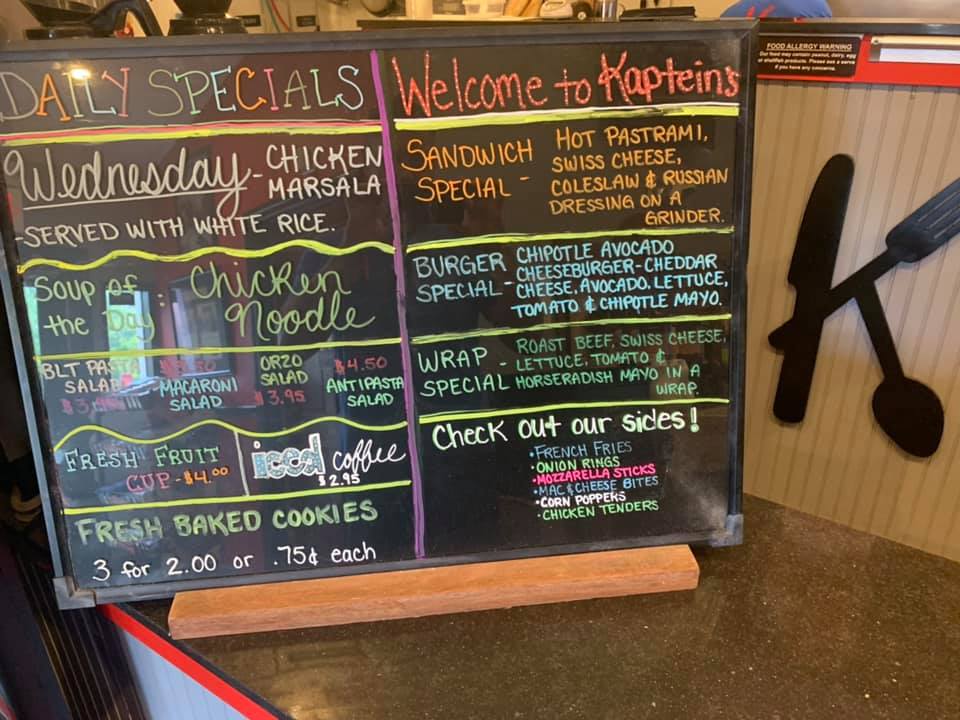 DAILY SPECIALS
Wednesday - CHICKEN
MARSALA
-SERVED WITH WHITE RICE.
Soup of
the Day
: Chicken
Noodle
BLT PASTA
SALAD
MACARONI
SALAD
ORZO
SALAD
$3.95
$4.50
ANTIPASTA
SALAD
FRESH FRUIT
CUP - $4.00
iced coffee
$2.95
FRESH BAKED COOKIES
3 for 2.00 or .75¢ each
Welcome to Kaptein's
SANDWICH
SPECIAL -
HOT PASTRAMI,
SWISS CHEESE,
COLESLAW & RUSSIAN
DRESSING ON A
GRINDER.
BURGER
SPECIAL -
CHIPOTLE AVOCADO
CHEESEBURGER - CHEDDAR
CHEESE, AVOCADO, LETTUCE,
TOMATO & CHIPOTLE MAYO.
WRAP -
SPECIAL
ROAST BEEF, SWISS CHEESE,
LETTUCE, TOMATO &
HORSERADISH MAYO IN A
WRAP.
Check out our sides!
•FRENCH FRIES
•ONION RINGS
•MOZZARELLA STICKS
•MAC & CHEESE BITES
•CORN POPPERS
•CHICKEN TENDERS
FOOD ALLERGY WARNING
Our food may contain peanut, dairy, egg
or shellfish products. Please see a server
if you have any concerns.